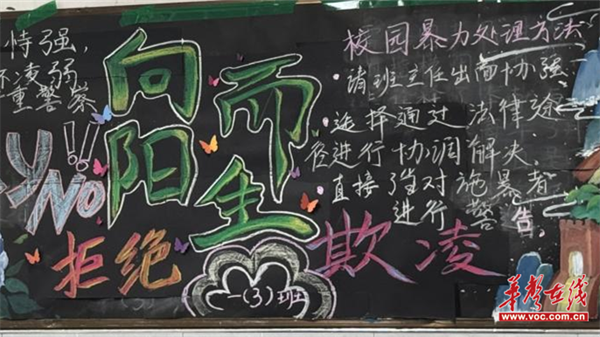 恃强,
不凌弱
重警察
Y NO!!
向阳
而生
拒绝
欺凌
一(3)班
校园暴力处理方法
·请班主任出面协强.
·选择通过法律途
径进行协调解决.
·直接强对施暴者
进行警告.
华声在线
www.voc.com.cn